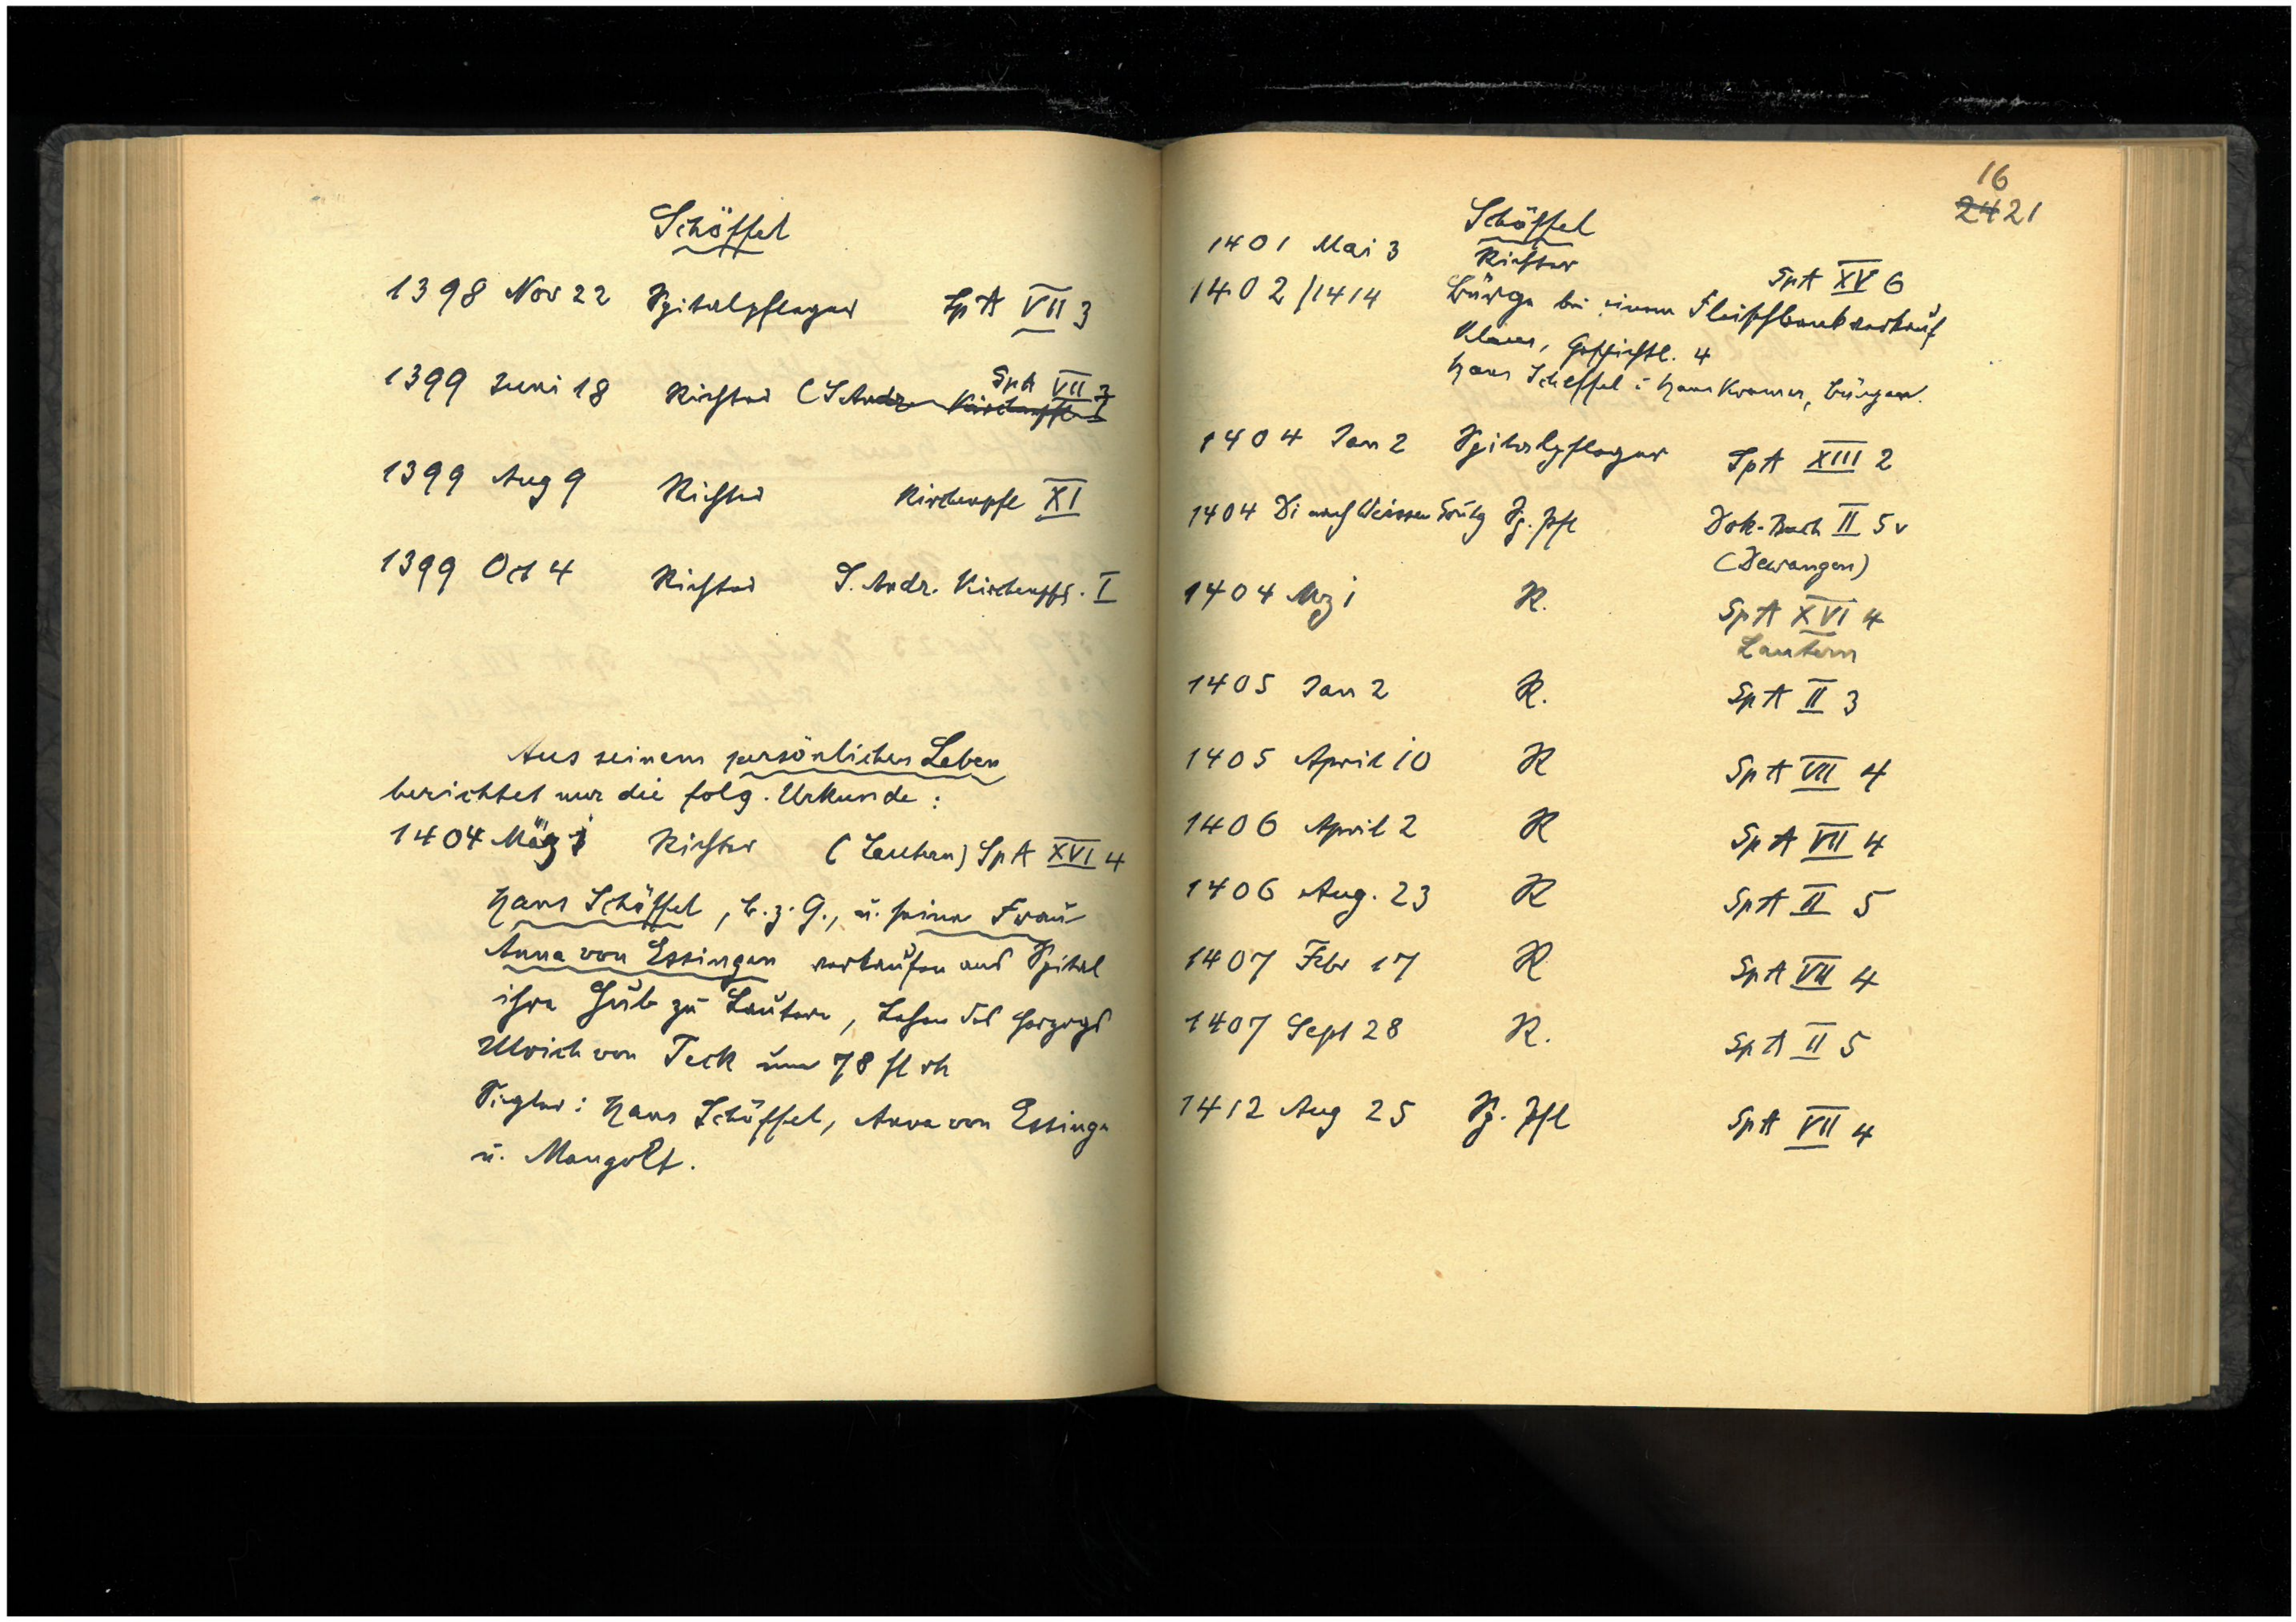 Schöffel
1398 Nov 22 Spitalpfleger SpA VII 3
1399 Juni 18 Richter (S. Andr. Kirchenpfl. I SpA VII 3
1399 Aug 9 Richter Kirchenpfl XI
1399 Oct 4 Richter S. Andr. Kirchenpfl. I
Aus seinem persönlichen Leben
berichtet nur die folg. Urkunde:
1404 März 1 Richter (Lautern) SpA XVI 4
Hans Schöffel, b. z. G., u. seine Frau
Anna von Essingen verkaufen ans Spital
ihre Hub zu Lautern, Lehen des Herzogs
Ulrich von Teck um 78 fl rh
Siegler: Hans Schöffel, Anna von Essinge
u. Mangolt.
16
24 21
Schöffel
1401 Mai 3 Richter SpA XV 6
1402/1414 Bürge bei einem Fleischbankverkauf
Klaus, Geschichtl. 4
Hans Scheffel : Hans Kramer, Bürgen.
1404 Jan 2 Spitalpfleger SpA XIII 2
1404 Di nach Weissen Sontg Sp. Pfl Dok-Buch II 5v
(Dewangen)
1404 Mz 1 R. SpA XVI 4
Lautern
1405 Jan 2 R. SpA II 3
1405 April 10 R SpA VII 4
1406 April 2 R SpA VII 4
1406 Aug. 23 R SpA II 5
1407 Febr 17 R SpA VII 4
1407 Sept 28 R. SpA II 5
1412 Aug 25 Sp. Pfl SpA VII 4